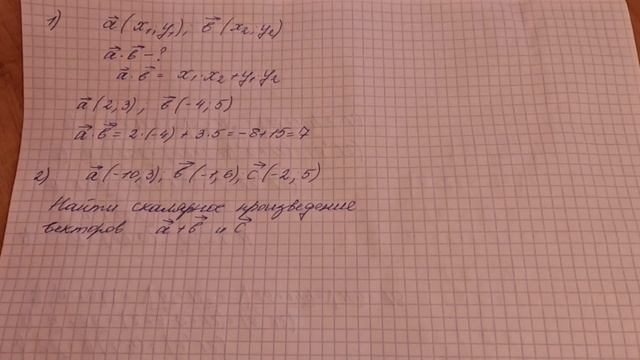 1) a⃗(x₁, y₁), b⃗(x₂, y₂)
a⃗·b⃗ - ?
a⃗·b⃗ = x₁·x₂+y₁y₂
a⃗(2,3), b⃗(-4,5)
a⃗·b⃗ = 2·(-4) + 3·5 = -8+15=7
2) a⃗(-10,3), b⃗(-1,6), c⃗(-2,5)
Найти скалярное произведение
векторов a⃗+b⃗ и c⃗